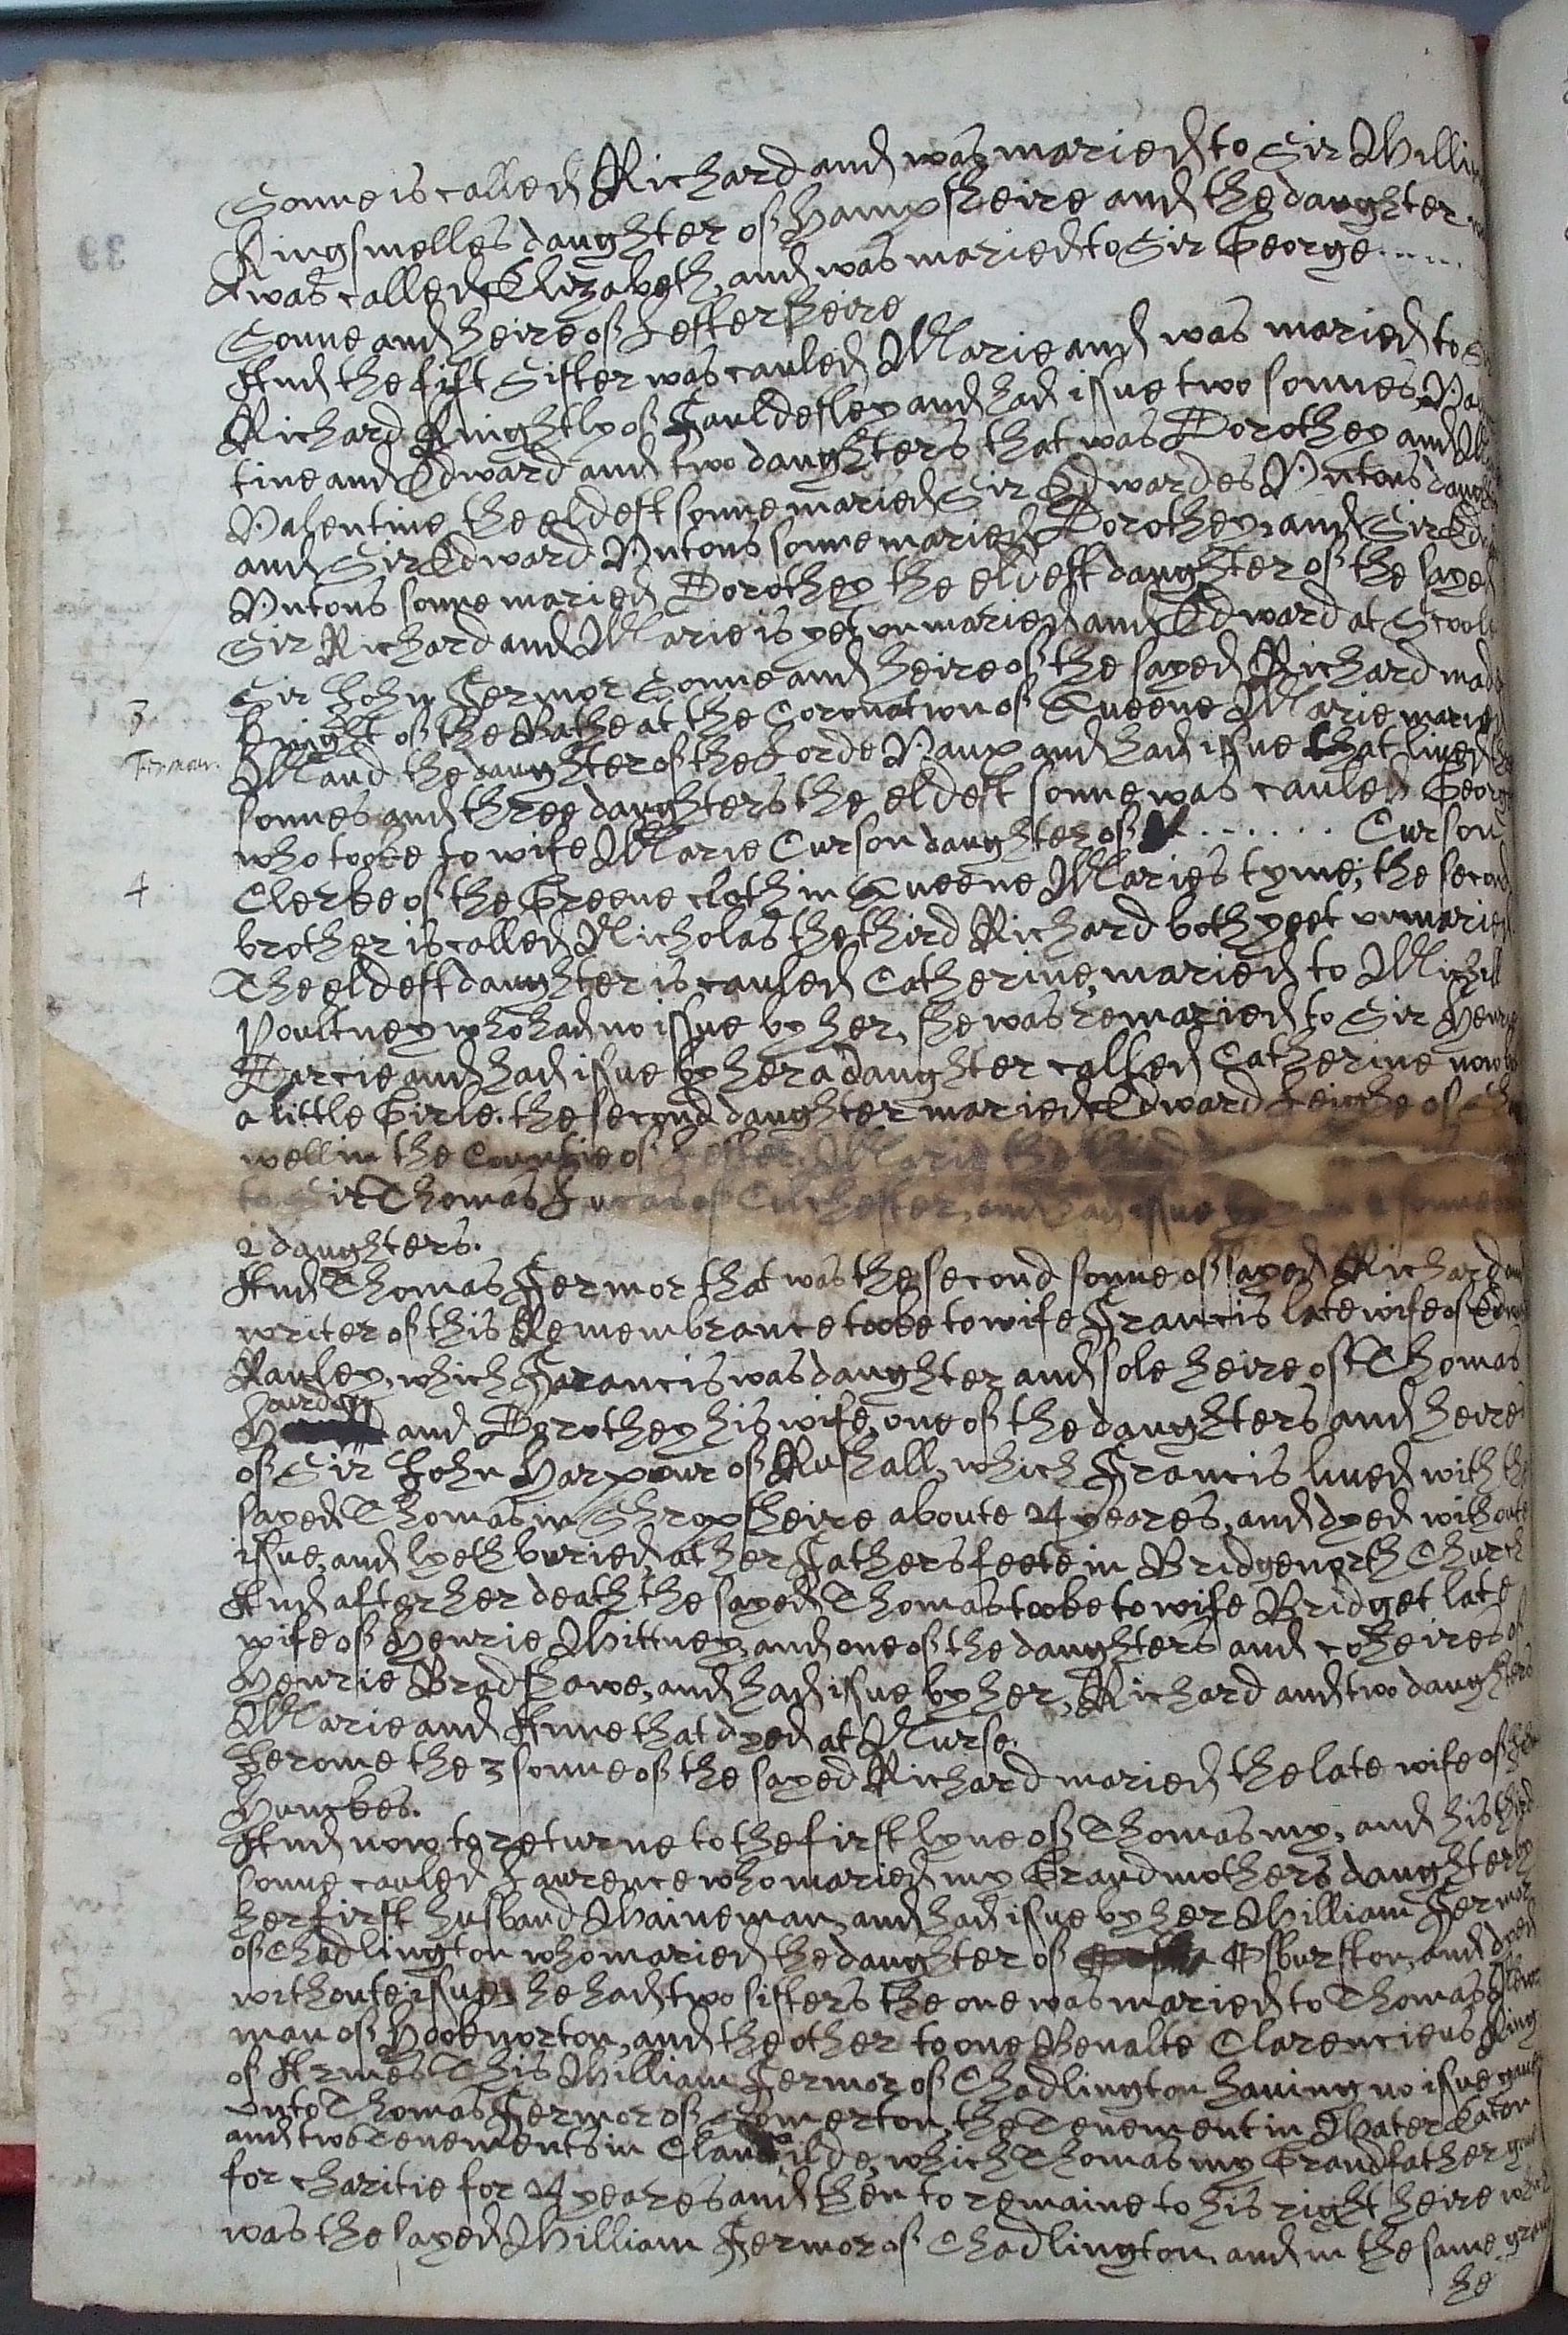 Sonne is called Richard and was maried to Sir Willi
Kingsmelles daughter of Hampsheire and the daughter
was called Elizabeth, and was maried to Sir George ......
Sonne and heire of Lestersheire
And the fift Sister was cauled Marie and was maried to
Richard Knightly of Fauldesley and had issue two sonnes, Va
tine and Edward and two daughters that was Dorothey and
Valentine the eldest sonne maried Sir Edwardes Untons daugh
and Sir Edward Untons sonne maried Dorothey, and Sir Ed
Untons sonne maried Dorothey the eldest daughter of the sayed
Sir Richard and Marie is yet unmaried and Edward at Scole
Sir John Fermor Sonne and heire of the sayed Richard mad
3
Knight of the Bathe at the Coronation of Queene Marie maried
Fermor.
Maud the daughter of the Lorde Vaux and had issue that lived
sonnes and three daughters the eldest sonne was cauled Georg
who tooke to wife Marie Curson daughter of ........ Curson
4
Clerke of the Greene cloth in Queene Maries tyme; the second
brother is called Nicholas the third Richard both yeet unmaried
The eldest daughter is cauled Catherine, maried to Michill
Poultney who had no issue by her, she was remaried to Sir Henri
Darcie and had issue by her a daughter called Catherine now
a little Girle. the second daughter maried Edward Leighe of
well in the Countie of Lester. Marie the third
to Sir Thomas Lucas of Culchester, and had issue a sonne
2 daughters.
And Thomas Fermor that was the second sonne of sayed Richard and
writer of this Remembrance tooke to wife Francis late wife of Ed
Rauley, which Francis was daughter and sole heire of Thomas
Hourde
and Dorothey his wife, one of the daughters and heires
of Sir John Harpour of Rushall, which Francis lived with the
sayed Thomas in Shropsheire aboute 24 yeares, and dyed without
issue, and lyeth buried at her Fathers feete in Bridgenorth Church
And after her death the sayed Thomas tooke to wife Bridget late
wife of Henrie Wittney, and one of the daughters and coheires of
Henrie Bradshawe, and had issue by her, Richard and two daughters
Marie and Anne that dyed at Nurse.
Jerome the 3 sonne of the sayed Richard maried the late wife of
Hunckes.
And now to returne to the first lyne of Thomas my, and his third
sonne cauled Laurence who maried my Grandmothers daughter by
her first husband Waineman, and had issue by her William Fermor
of Chadlington who maried the daughter of Osburston, and dyed
without issue, he had two sisters the one was maried to Thomas
man of Hooknorton, and the other to one Benalte Clarencieus King
of Armes This William Fermor of Chadlington having no issue gave
unto Thomas Fermor of Somerton, the Tenement in Water Eaton
and two Tenements in Clanfilde, which Thomas my Grandfather gave
for charitie for 24 yeares and then to remaine to his right heire which
was the sayed William Fermor of Chadlington, and in the same
he